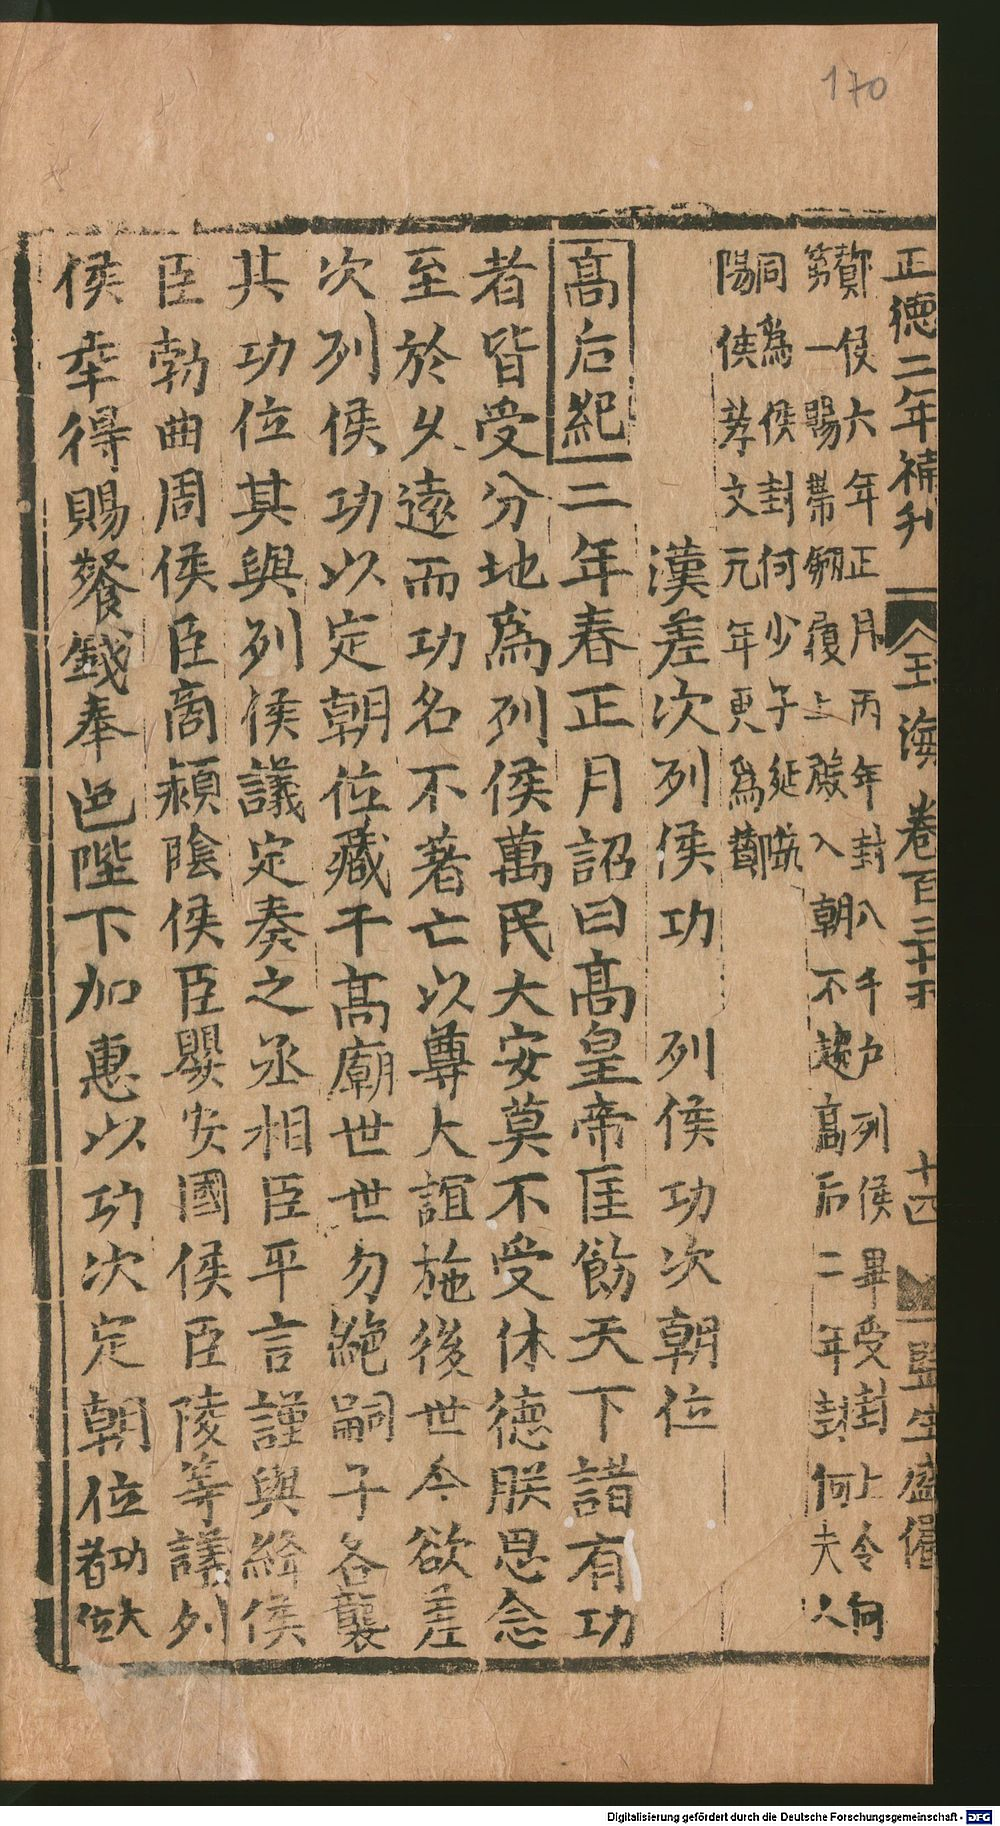 170
正德二年補刊 玉海卷百三十五 十四 監生盛
酇侯六年正月丙午封八千户列侯畢受封上令何
第一賜帶劒履上殿入朝不趨髙后二年封何夫人
同為侯封何少子延
陽侯孝文元年更爲酇
漢差次列侯功 列侯功次朝位
髙后紀二年春正月詔曰髙皇帝匡飭天下諸有功
者皆受分地爲列侯萬民大安莫不受休德朕思念
至於乆遠而功名不著亡以尊大誼施後世今欲差
次列侯功以定朝位藏于髙廟世世勿絶嗣子各襲
其功位其與列侯議定奏之丞相臣平言謹與絳侯
臣勃曲周侯臣商潁陰侯臣嬰安國侯臣陵等議列
侯幸得賜餐錢奉邑陛下加惠以功次定朝位功大
者位
Digitalisierung gefördert durch die Deutsche Forschungsgemeinschaft - DFG